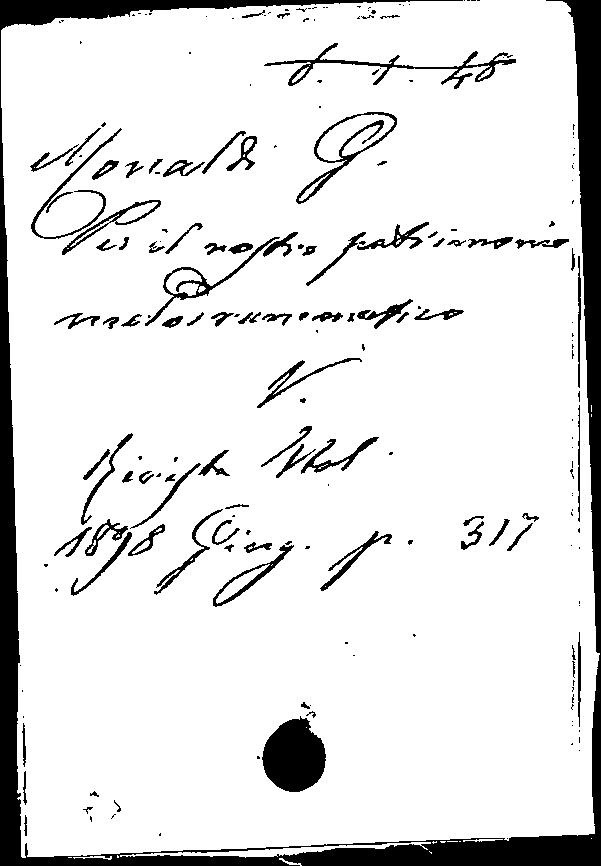 6. 1. 48
Monaldi G.
Per il nostro patrimonio
melodrammatico
V.
Rivista Ital.
1898 Giug. p. 317